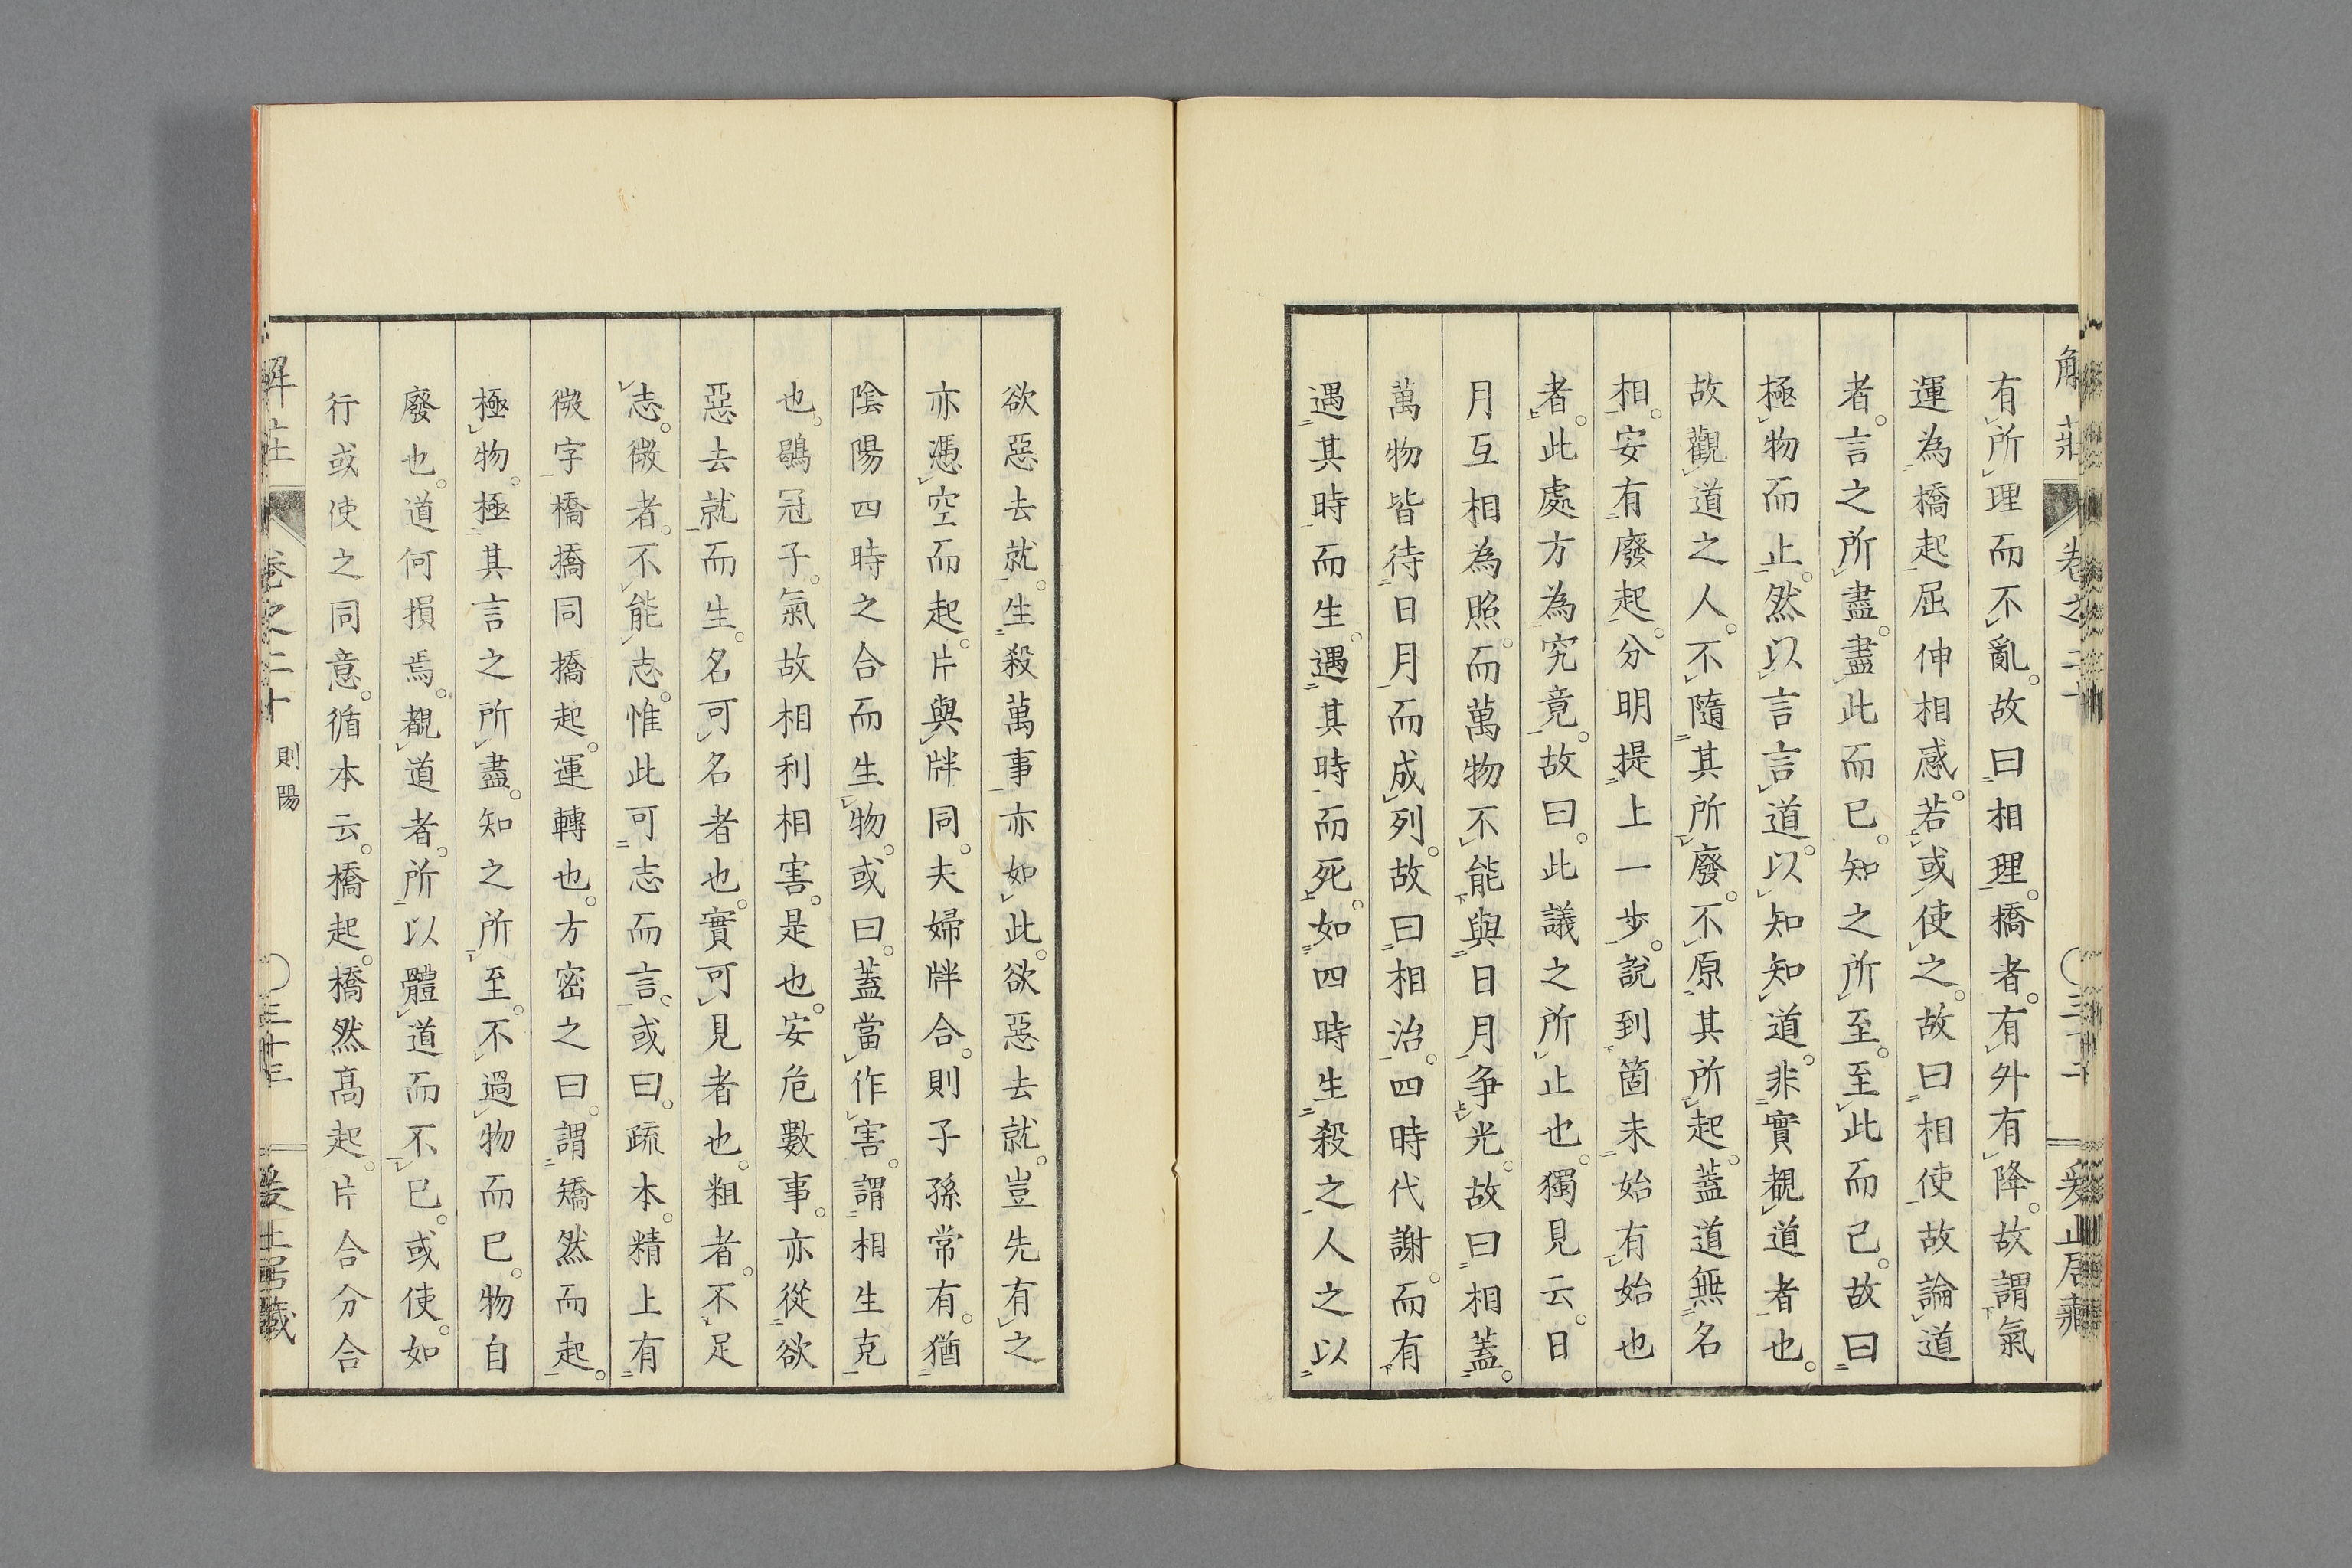 有所理而不亂。故曰相理。橋者。有外有降。故謂氣
運為橋起屈伸相感。若或使之。故曰相使故論道
者。言之所盡。盡此而已。知之所至。至此而已。故曰
極物而止。然以言言道。以知知道。非實覩道者也。
故觀道之人。不隨其所廢。不原其所起。蓋道無名
相。安有廢起。分明提上一步。說到箇未始有始也
者。此處方為究竟。故曰。此議之所止也。獨見云。日
月互相為照。而萬物不能與日月争光。故曰相蓋。
萬物皆待日月而成列。故曰相治。四時代謝。而有
遇其時而生。遇其時而死。如四時生殺之人之以
欲惡去就。生殺萬事亦如此。欲惡去就。豈先有之
亦憑空而起。片與牉同。夫婦牉合。則子孫常有。猶
陰陽四時之合而生物。或曰。蓋當作害。謂相生克
也。鶡冠子。氣故相利相害。是也。安危數事。亦從欲
惡去就而生。名可名者也。實可見者也。粗者。不足
志。微者。不能志。惟此可志而言。或曰。疏本。精上有
微字橋撟同撟起。運轉也。方密之曰。謂矯然而起。
極物。極其言之所盡。知之所至。不過物而已。物自
廢也。道何損焉。覩道者。所以體道而不已。或使。如
行或使之同意。循本云。橋起。橋然高起。片合分合
則陽